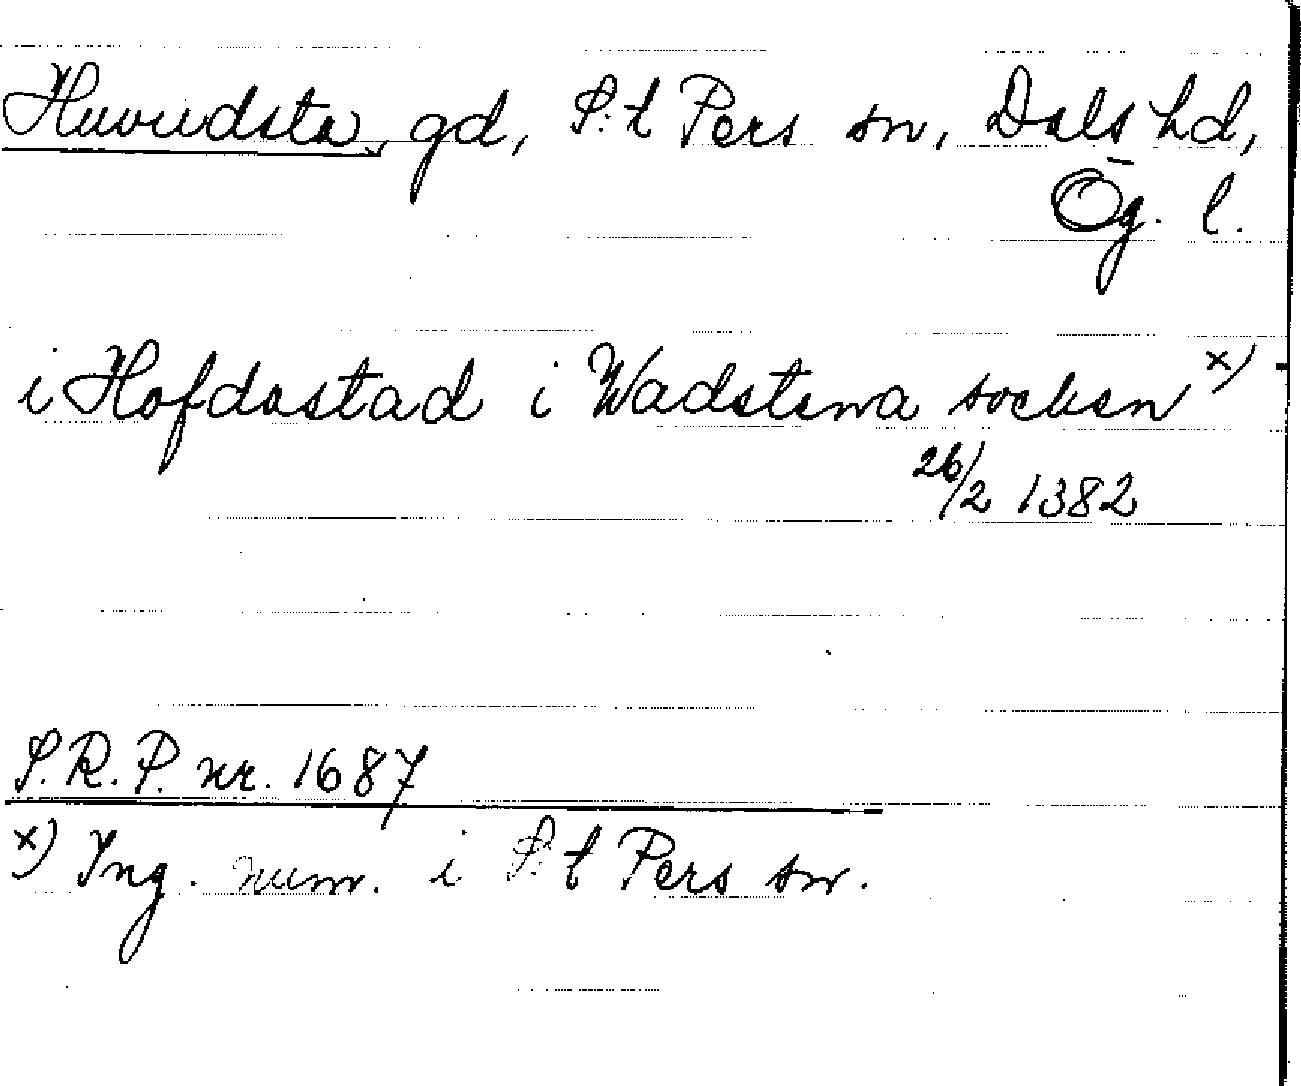 Huvudsta, gd, S:t Pers sn, Dals hd,
Ög. l.
i Hofdastad i Wadstena socken x)
26/2 1382
S.R.P. nr. 1687
x) Ing. num. i S:t Pers sn.